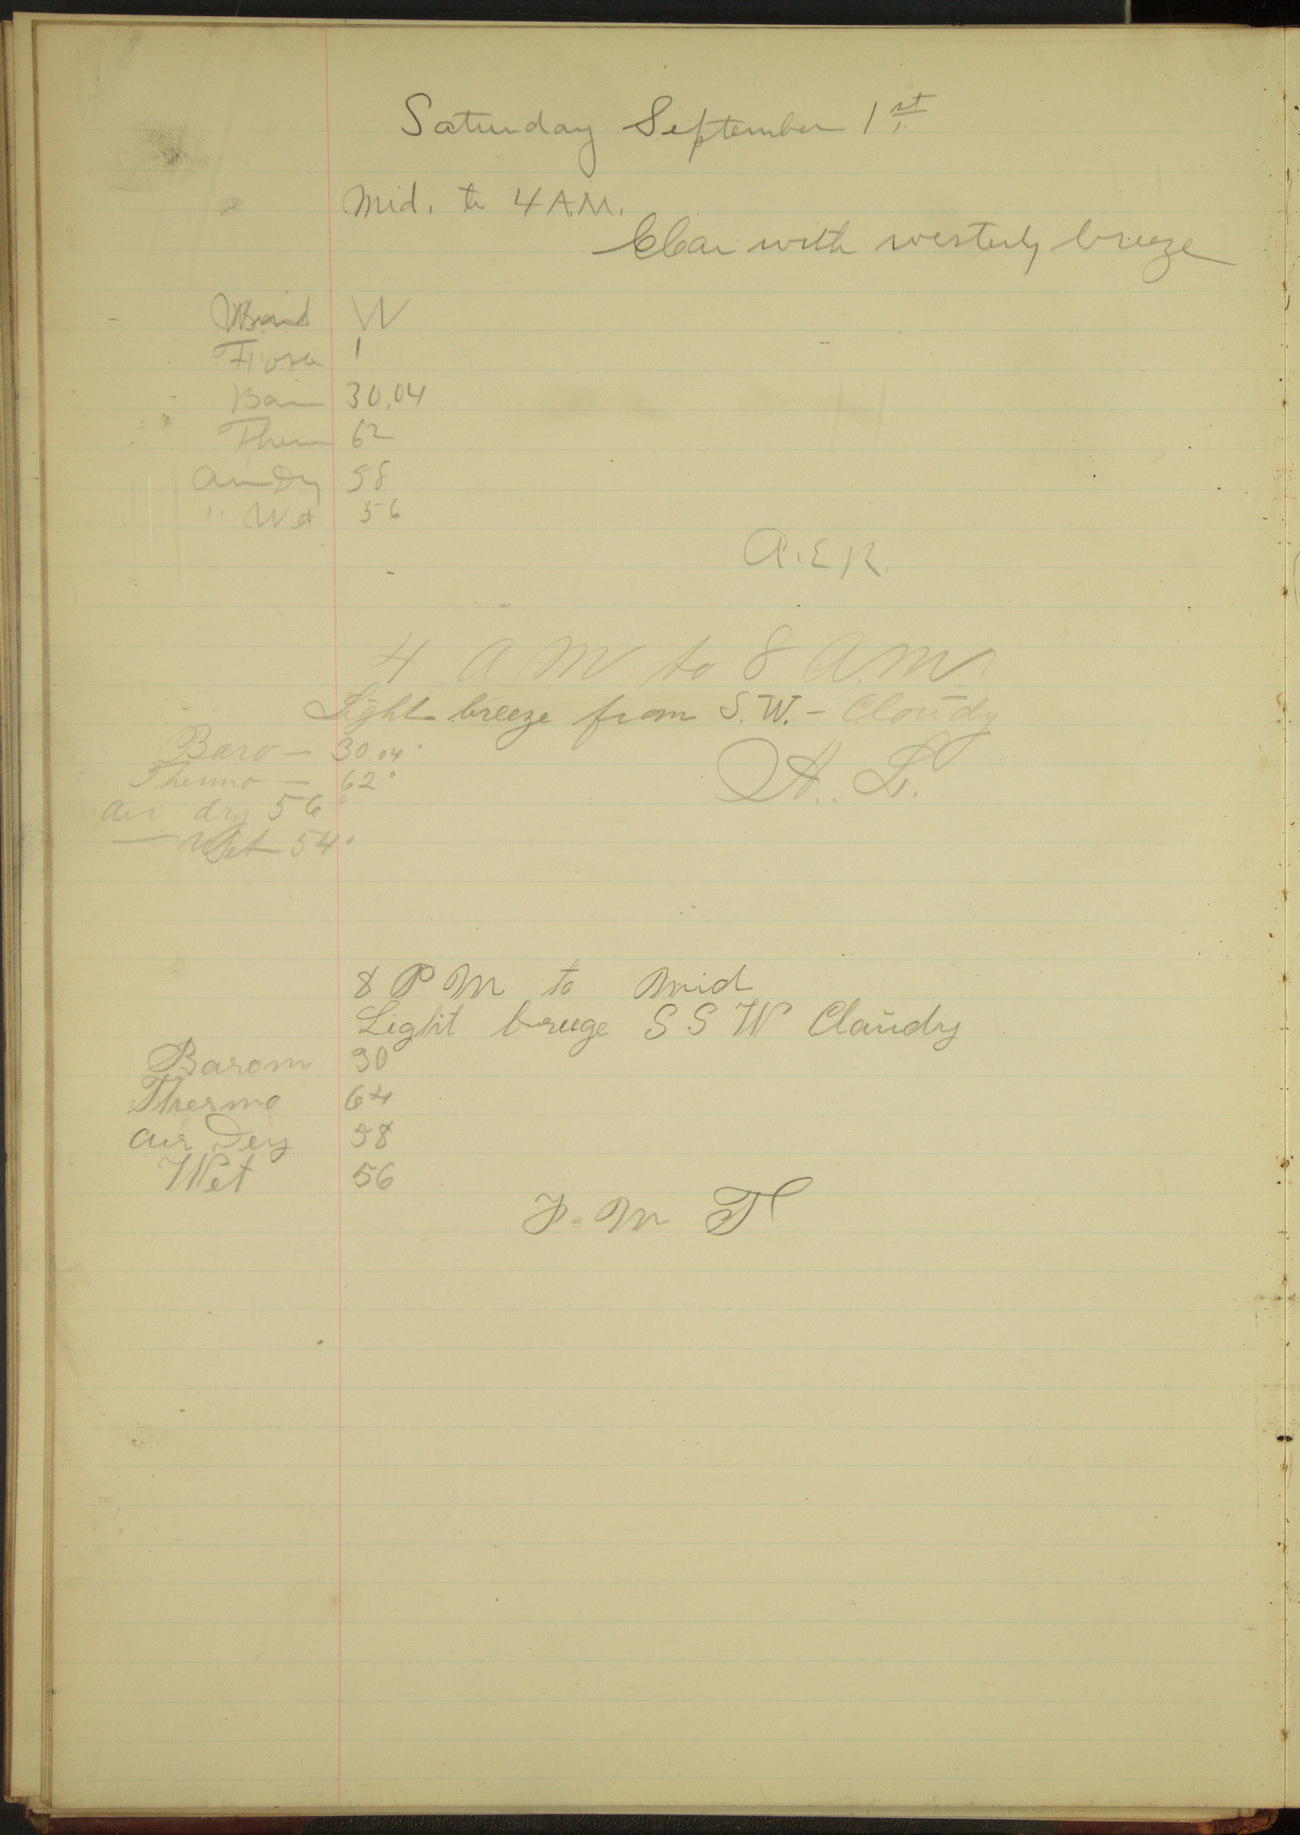 Saturday September 1st
Mid. to 4 A.M.
Clear with westerly breeze
Wind W
Force 1
Bar 30.04
Ther 62
Air Dry 58
" Wet 56
A.E.R.
4 AM to 8 A.M.
Light breeze from S.W. - Cloudy
Baro — 30.04
Thermo — 62°
Air dry 56°
— Wet 54°
A. L.
8 PM to Mid
Light breeze SSW Cloudy
Barom 30
Thermo 64
Air Dry 58
Wet 56
F. M T